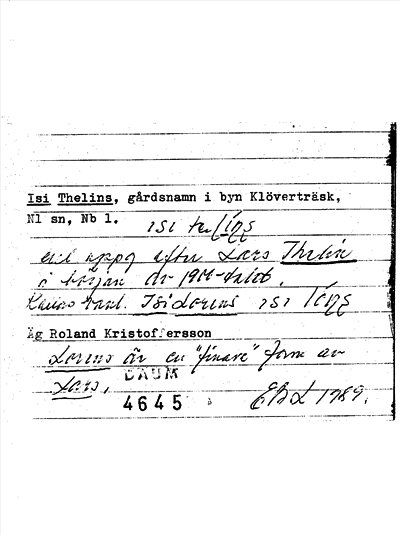 Isi Thelins, gårdsnamn i byn Klöverträsk,
Nl sn, Nb l.
isi
enl uppg efter Lars Thelin
i början av 1900-talet.
Kallas även Isi Lorens isi
Äg Roland Kristoffersson
Lorens är en "finare" form av
Lars.
DAUM
4645 EBL 1989.